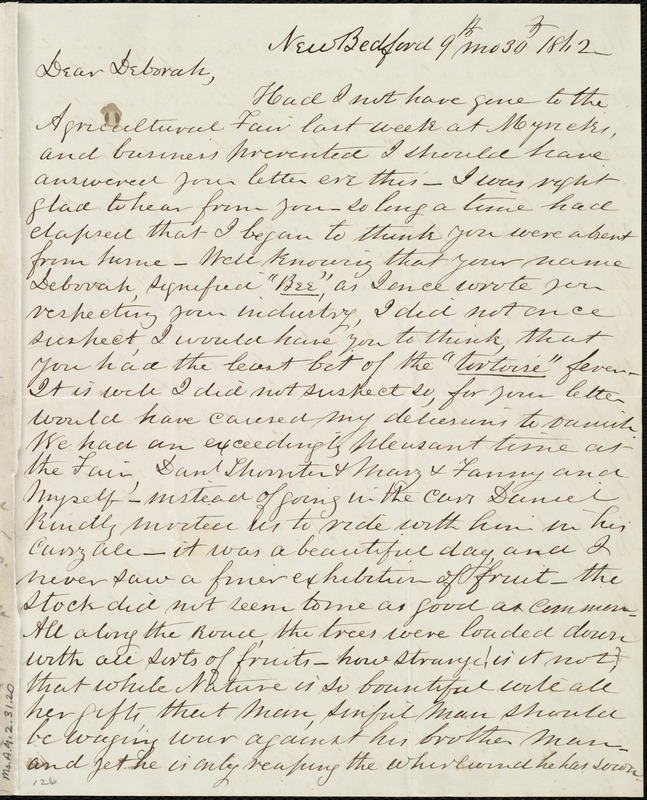 New Bedford 9th mo 30th 1862
Dear Deborah,
Had I not have gone to the
Agricultural Fair last week at Myricks,
and business prevented I should have
answered your letter ere this – I was right
glad to hear from you – so long a time had
elapsed that I began to think you were absent
from home – Well knowing that your name
Deborah, signified "Bee", as I once wrote you
respecting your industry, I did not once
suspect, I would have you to think, that
you had the least bit of the "tortoise" fever –
It is well I did not suspect so, for your letter
would have caused my delusions to vanish.
We had an exceedingly pleasant time at
the Fair, Danl Thornton & Mary & Fanny and
myself – instead of going in the cars Daniel
kindly invited us to ride with him in his
carryall – it was a beautiful day, and I
never saw a finer exhibition of fruit – the
stock did not seem to me as good as common –
All along the road, the trees were loaded down
with all sorts of fruits – how strange (is it not)
that while Nature is so bountiful with all
her gifts that man, sinful man should
be waging war against his brother man –
and yet he is only reaping the whirlwind he has sown –
Ms.A.9.2.31.20
126